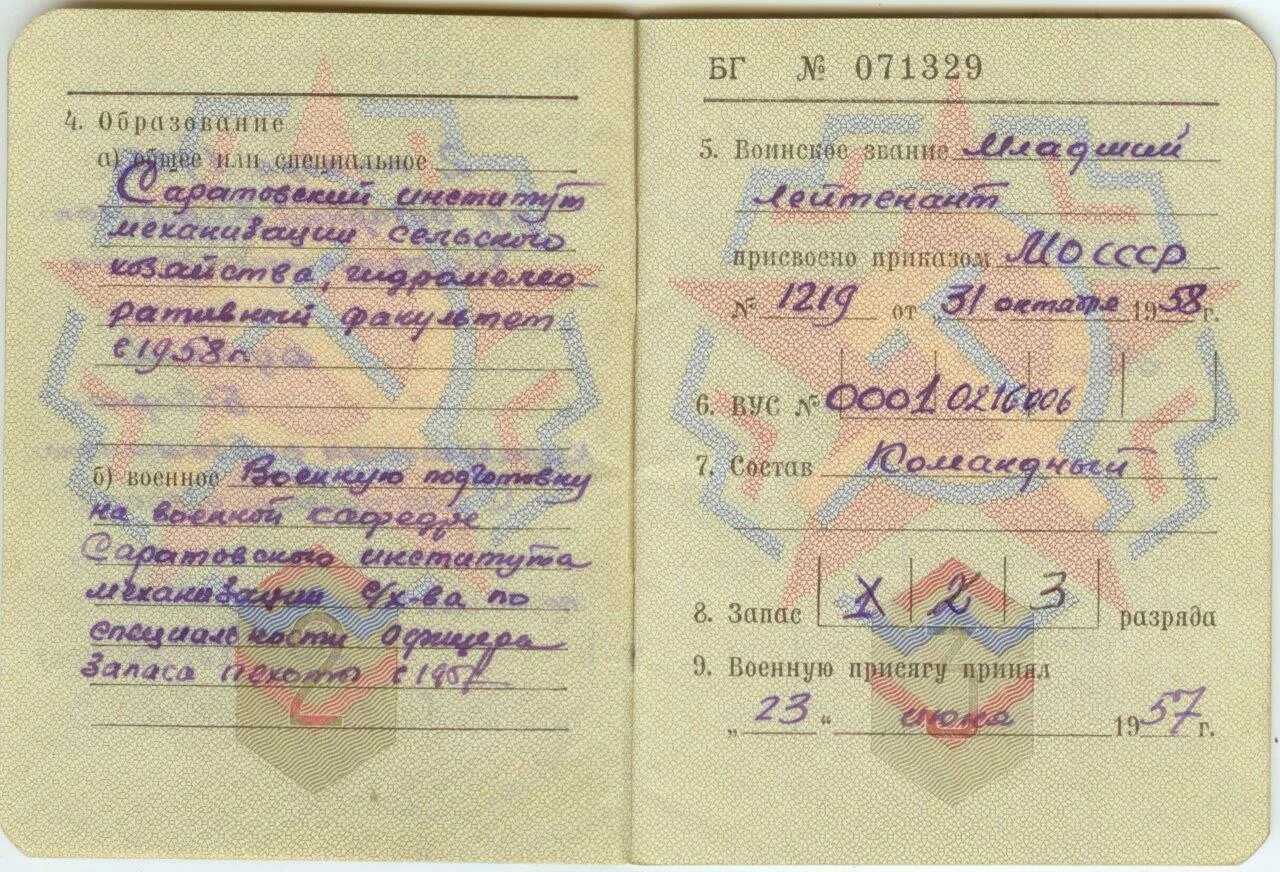 4. Образование
а) общее или специальное
Саратовский институт
механизации сельского
хозяйства, гидромелео-
ративный факультет
в 1958 г.
б) военное Военную подготовку
на военной кафедре
Саратовского института
механизации с/х-ва по
специальности офицера
запаса пехоты в
БГ № 071329
5. Воинское звание Младший
лейтенант
присвоено приказом МО СССР
№ 1219 от „31 октября 1958 г.
6. ВУС № 0001 0216006
7. Состав Командный
8. Запас 1 2 3 разряда
9. Военную присягу принял
„23“ июня 1957 г.